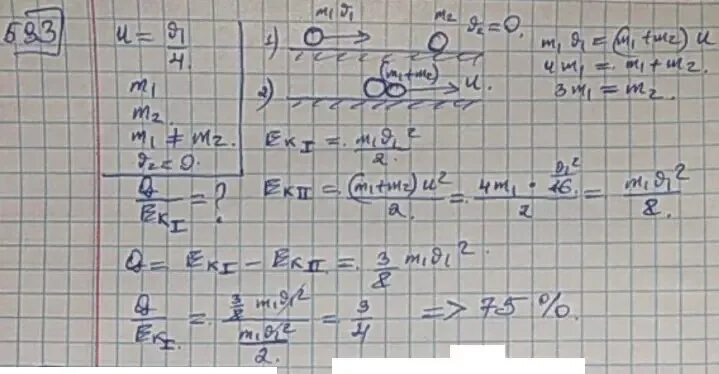 593
u = ϑ₁/4.
m₁
m₂
m₁ ≠ m₂.
ϑ₂ = 0.
Q/Eₖ_I = ?
1) m₁ ϑ₁ m₂ ϑ₂ = 0.
2) (m₁+m₂) u.
m₁ ϑ₁ = (m₁+m₂) u
4m₁ = m₁ + m₂.
3m₁ = m₂.
Eₖ_I = m₁ϑ₁²/2.
Eₖ_II = (m₁+m₂) u²/2. = 4m₁ · ϑ₁²/16/2 = m₁ϑ₁²/8.
Q = Eₖ_I − Eₖ_II = 3/8 m₁ϑ₁².
Q/Eₖ_I. = 3/8 m₁ϑ₁²/m₁ϑ₁²/2. = 3/4 => 75 %.